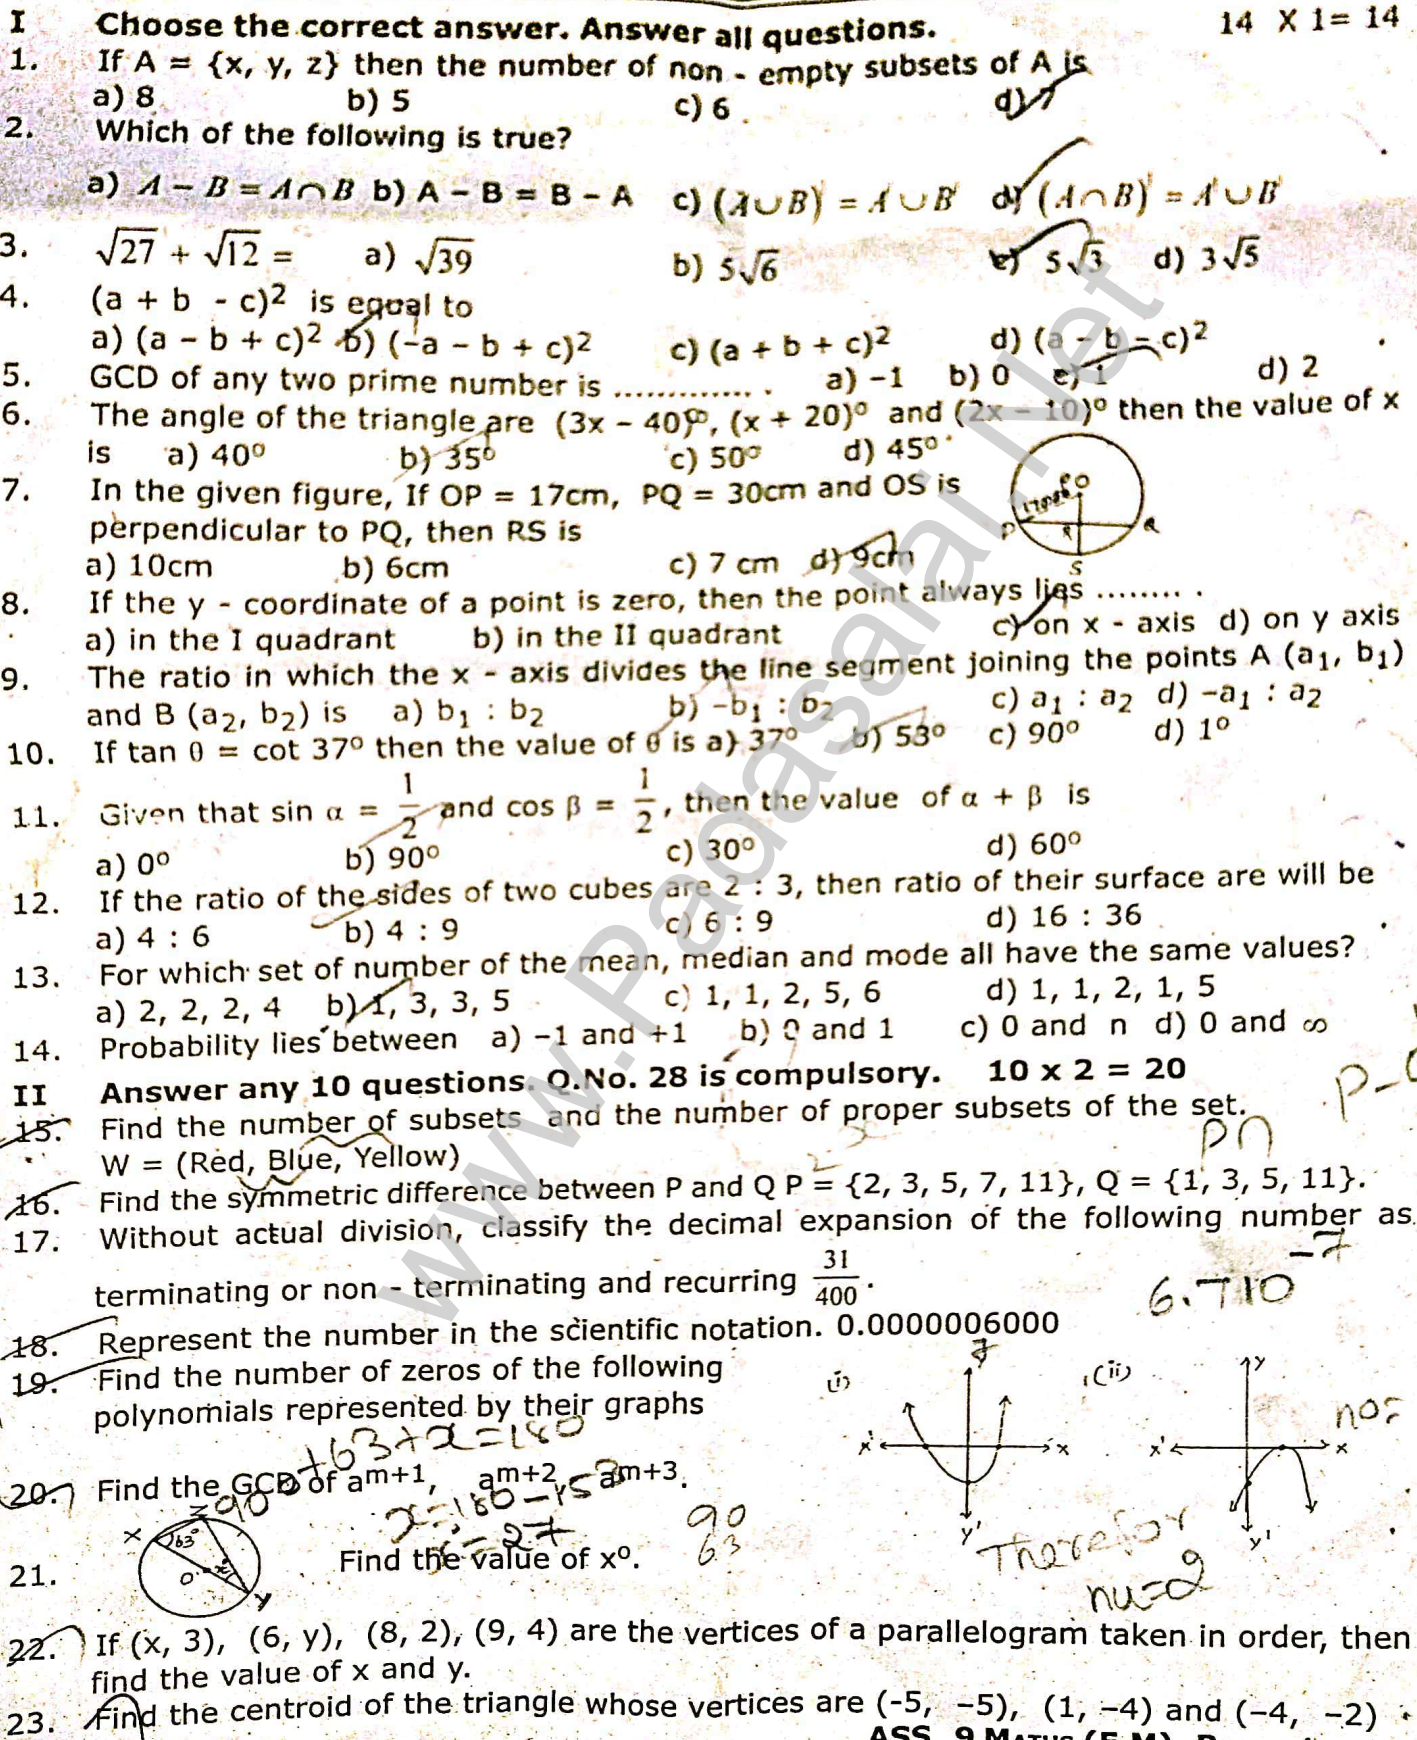 I Choose the correct answer. Answer all questions. 14 X 1= 14
1. If A = {x, y, z} then the number of non - empty subsets of A is
a) 8 b) 5 c) 6 d) 7
2. Which of the following is true?
a) A − B = A∩B b) A − B = B − A c) (A∪B)' = A'∪B' d) (A∩B)' = A'∪B'
3. √27 + √12 = a) √39 b) 5√6 c) 5√3 d) 3√5
4. (a + b - c)² is equal to
a) (a − b + c)² b) (−a − b + c)² c) (a + b + c)² d) (a − b − c)²
5. GCD of any two prime number is ............. . a) −1 b) 0 c) 1 d) 2
6. The angle of the triangle are (3x − 40)⁰, (x + 20)⁰ and (2x − 10)⁰ then the value of x
is a) 40⁰ b) 35⁰ c) 50⁰ d) 45⁰
7. In the given figure, If OP = 17cm, PQ = 30cm and OS is
perpendicular to PQ, then RS is
a) 10cm b) 6cm c) 7 cm d) 9cm
O
P R Q
S
8. If the y - coordinate of a point is zero, then the point always lies ........ .
a) in the I quadrant b) in the II quadrant c) on x - axis d) on y axis
9. The ratio in which the x - axis divides the line segment joining the points A (a₁, b₁)
and B (a₂, b₂) is a) b₁ : b₂ b) −b₁ : b₂ c) a₁ : a₂ d) −a₁ : a₂
10. If tan θ = cot 37⁰ then the value of θ is a) 37⁰ b) 53⁰ c) 90⁰ d) 1⁰
11. Given that sin α = 1/2 and cos β = 1/2, then the value of α + β is
a) 0⁰ b) 90⁰ c) 30⁰ d) 60⁰
12. If the ratio of the sides of two cubes are 2 : 3, then ratio of their surface are will be
a) 4 : 6 b) 4 : 9 c) 6 : 9 d) 16 : 36
13. For which set of number of the mean, median and mode all have the same values?
a) 2, 2, 2, 4 b) 1, 3, 3, 5 c) 1, 1, 2, 5, 6 d) 1, 1, 2, 1, 5
14. Probability lies between a) −1 and +1 b) 0 and 1 c) 0 and n d) 0 and ∞
II Answer any 10 questions. Q.No. 28 is compulsory. 10 x 2 = 20
15. Find the number of subsets and the number of proper subsets of the set.
W = (Red, Blue, Yellow)
16. Find the symmetric difference between P and Q P = {2, 3, 5, 7, 11}, Q = {1, 3, 5, 11}.
17. Without actual division, classify the decimal expansion of the following number as
terminating or non - terminating and recurring 31/400 .
6.710⁻⁷
18. Represent the number in the scientific notation. 0.0000006000
19. Find the number of zeros of the following
polynomials represented by their graphs
(i) y x' x y'
(ii) y x' x y'
+63+x=180
20. Find the GCD of aᵐ⁺¹, aᵐ⁺², aᵐ⁺³.
90
x=180-153
= 27
90
63
Therefor
nu=2
21. X Z 63° O x° Y Find the value of x⁰.
22. If (x, 3), (6, y), (8, 2), (9, 4) are the vertices of a parallelogram taken in order, then
find the value of x and y.
23. Find the centroid of the triangle whose vertices are (-5, −5), (1, −4) and (−4, −2)
www.Padasalai.Net